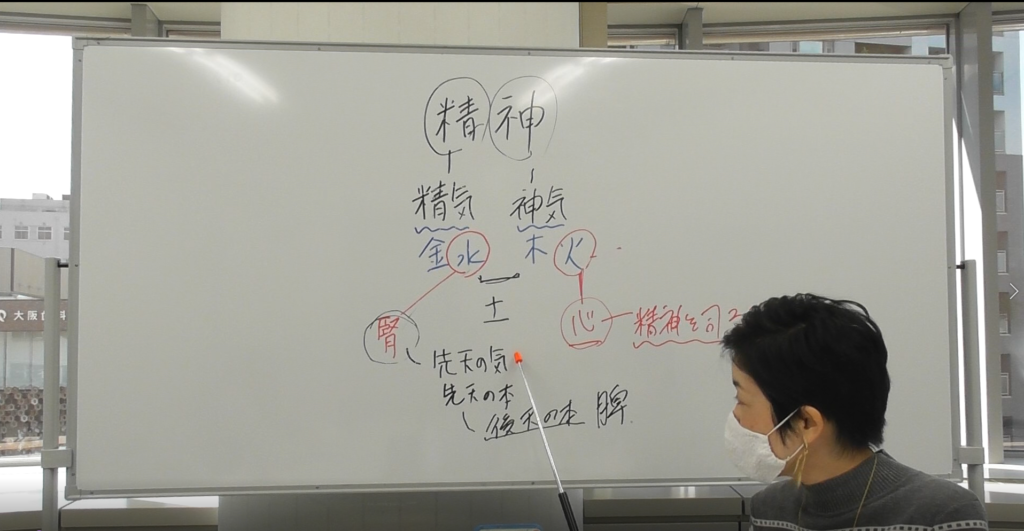 精神
精気 神気
金水 木火
土
腎 心 精神を司る
先天の気
先天の本
後天の本 脾
大阪